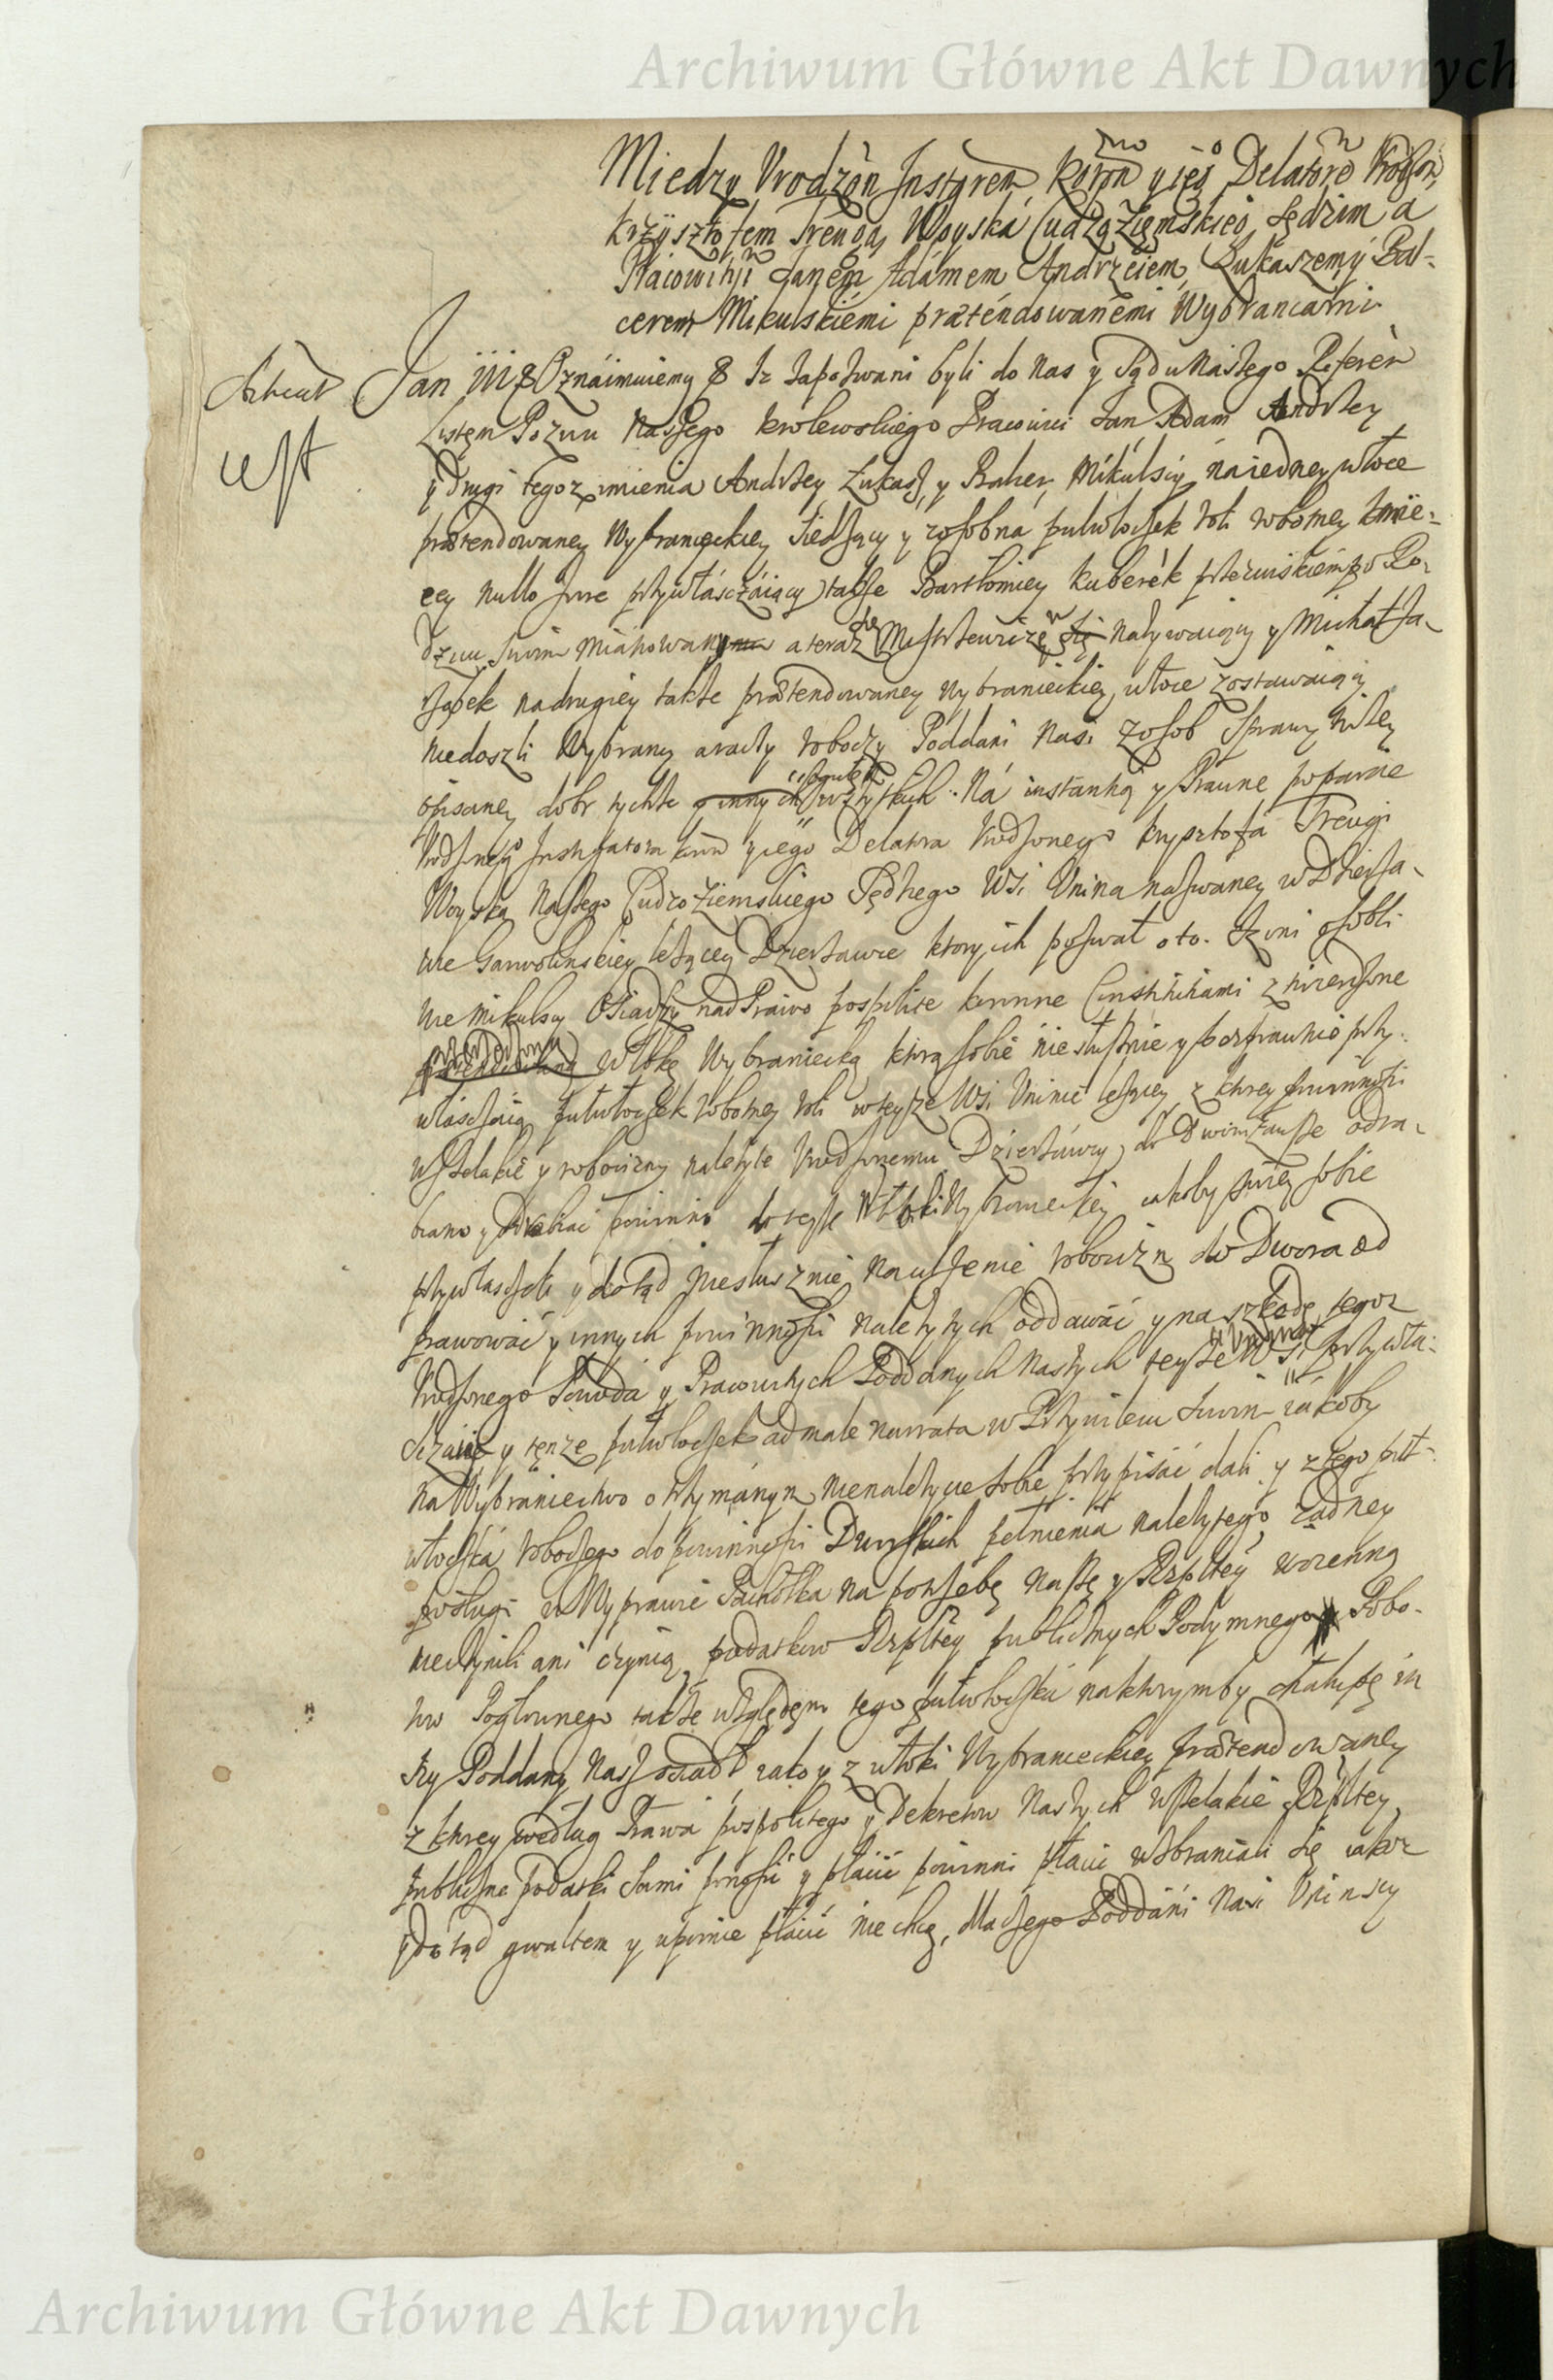 Archiwum Główne Akt Dawnych
Miedzy Vrodzon Instgrem Koron y iego Delatore Vrodzon
Krzysztofem Treugą Woyska Cudzoziemskieo Sędzim a
Pracowitemi Janem Adamem Andrzeiem, Łukaszem y Bal-
cerem Mikulskiemi prætendowanemi Wybrancami
Jan III Oznaimuiemy Iz zapozwani byli do Nas y Sądu Naszego Referen
est
Listem Pozwu Naszego Krolewskiego Pracowici Jan Adam Andrzey
y drugi tegoz imienia Andrzey Łukasz y Balcer Mikulscy na iedney włoce
prætendowaney Wybranieckiey siedzący y zosobna pułwłoczek roli robotney kmie-
cey nullo Jure przywłaszczaiący także Bartłomiey Kuberek przezwiskiem po Ro-
dzicu swoim mianowany a teraz się nazywaiący y Michał
na drugiey także prætendowaney wybranieckiey włoce zostawaiący
niedoszli Wybrancy a raczey roboczy Poddani Nasi z osob sprawy niżey
opisaney dobr tychże y innych wszytkich. Na instantią y Prawne poparcie
Vrodzonego Instigatora Koron y iego Delatora Vrodzonego Krysztofa Treugi
Woyska Naszego Cudzoziemskiego Sędziego Wsi Vnina nazwaney w Dzierża-
wie Garwolinskiey leżącey Dzierżawce ktory ich pozwał o to. Iż oni osobli
wie Mikulscy Osiadszy nad Prawo pospolite koronne Constitutiami ztwierdzone
włokę Wybraniecką ktorą sobie niesłusznie y bezprawnie przy-
właszczaią pułwłoczek robotney roli w teyże Wsi Vninie leżącey z ktorey powinnosci
wszelakie y robocizny należyte Vrodzonemu Dzierżawcy do Dworu zawsze odra-
biano y odrabiać powinni do teyże Włoki Wybranieckiey jakoby swoiey sobie
przywłaszczyli y dotąd niesłusznie na ulżenie robocizn do Dwora od
prawować y innych powinnosci należytych oddawać y na szkodę tegoz
Vrodzonego Powoda y Pracowitych Poddanych Naszych teyże Wsi przywła-
szczaią y tenże pułwłoczek ad male narrata w Przywileiu swoim iakoby
na Wybraniectwo otrzymanym nienależycie sobie przypisać dali y z tego puł-
włoczka roboczego do powinnosci Dworskich pełnienia należytego żadney
posługi w Wyprawie Pachołka na potrzebę Naszę y Rzpltey woienną
nie czynili ani czynią podatkow Rzpltey publicznych Podymnego Pobo-
row Pogłownego także względem tego pułwłoczka na ktorymby chałupę in
szy Poddany Nasz osiadł iako y z włoki Wybranieckiey prætendowaney
z ktorey według Prawa pospolitego y Dekretow Naszych wszelakie Rzpltey
publiczne podatki sami ponosić y płacić powinni płacić wzbraniali się iakoz
y dotąd gwałtem y upornie płacić nie chcą, dla czego Poddani Nasi Vninscy
Archiwum Główne Akt Dawnych